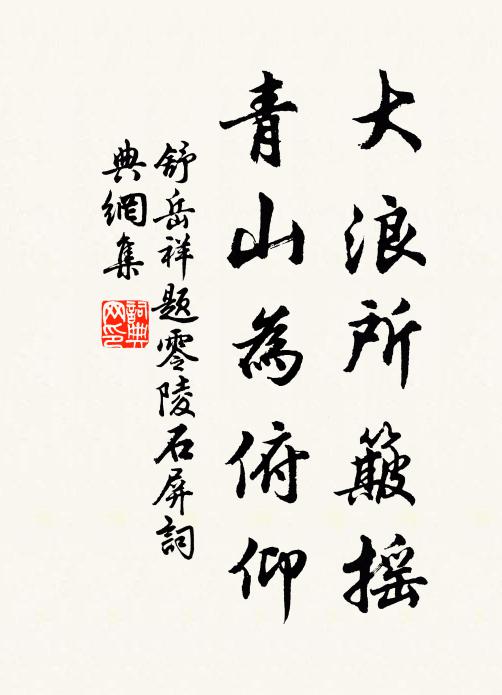 大浪所簸摇
青山為俯仰
舒岳祥題零陵石屏詞
典網集
詞典網印